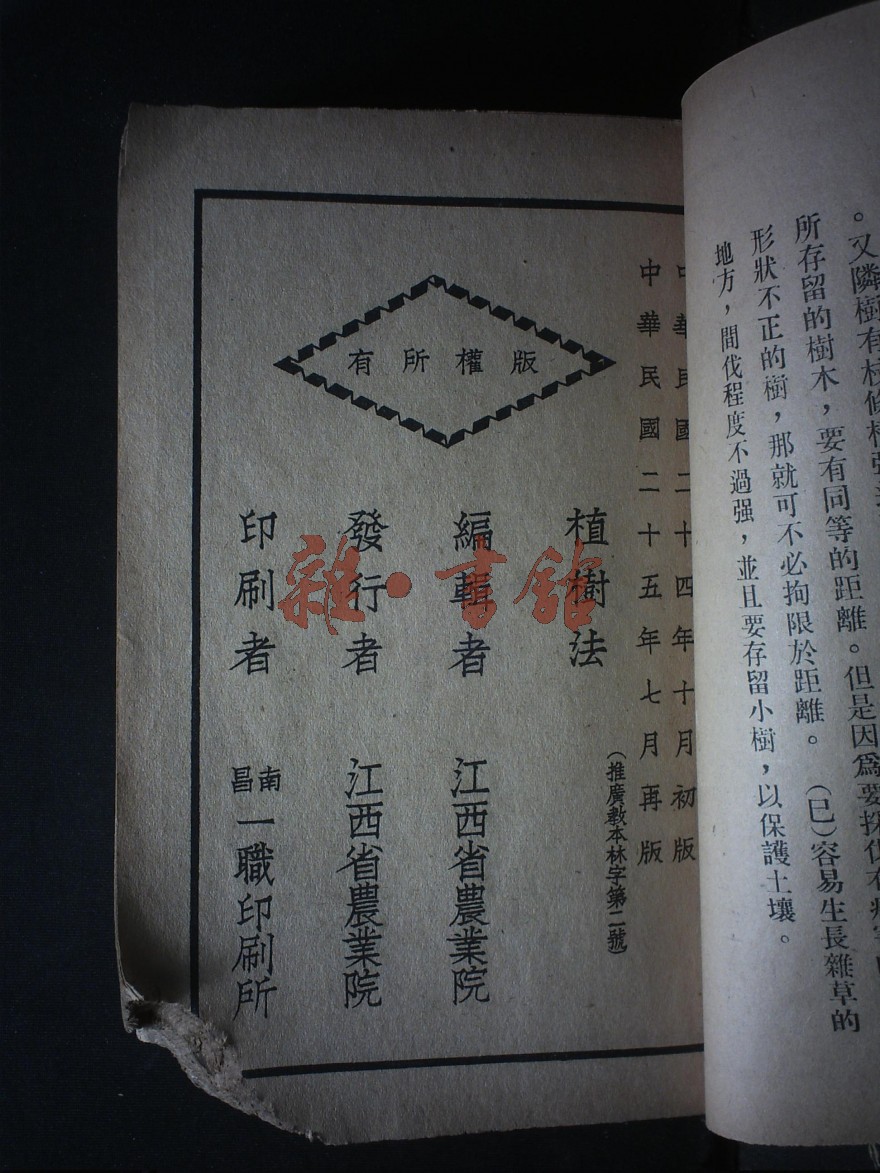 。又隣樹有枝條
所存留的樹木，要有同等的距離。但是因爲要採伐有
形狀不正的樹，那就可不必拘限於距離。　(巳)容易生長雜草的
地方，間伐程度不過强，並且要存留小樹，以保護土壤。
中華民國二十四年十月初版
中華民國二十五年七月再版
植樹法
(推廣教本林字第二號)
版權所有
編輯者　江西省農業院
發行者　江西省農業院
印刷者　南昌一職印刷所
雜·書館